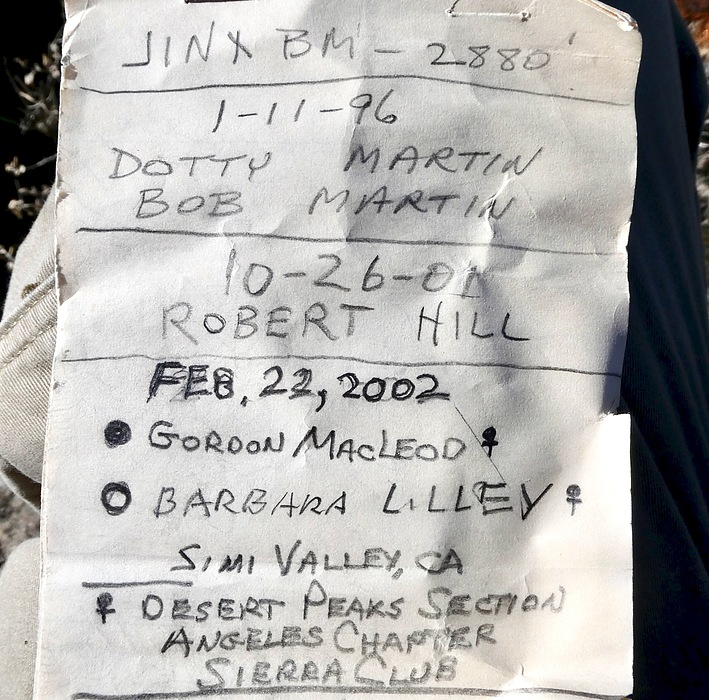 JINX BM - 2880'
1-11-96
DOTTY MARTIN
BOB MARTIN
10-26-01
ROBERT HILL
FEB, 22, 2002
GORDON MACLEOD
BARBARA LILLEY
SIMI VALLEY, CA
DESERT PEAKS SECTION
ANGELES CHAPTER
SIERRA CLUB